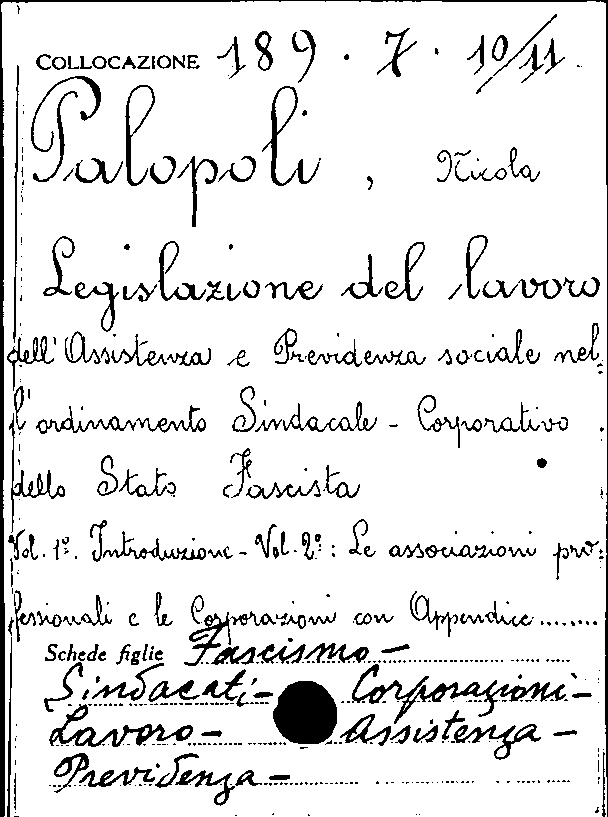 COLLOCAZIONE 189 . 7 . 10/11
Palopoli , Nicola
Legislazione del lavoro
dell'Assistenza e Previdenza sociale nel=
l'ordinamento Sindacale - Corporativo .
dello Stato Fascista
Vol. 1º. Introduzione - Vol. 2º: Le associazioni pro=
fessionali e le Corporazioni con Appendice........
Schede figlie Fascismo -
Sindacati - Corporazioni -
Lavoro - Assistenza -
Previdenza -